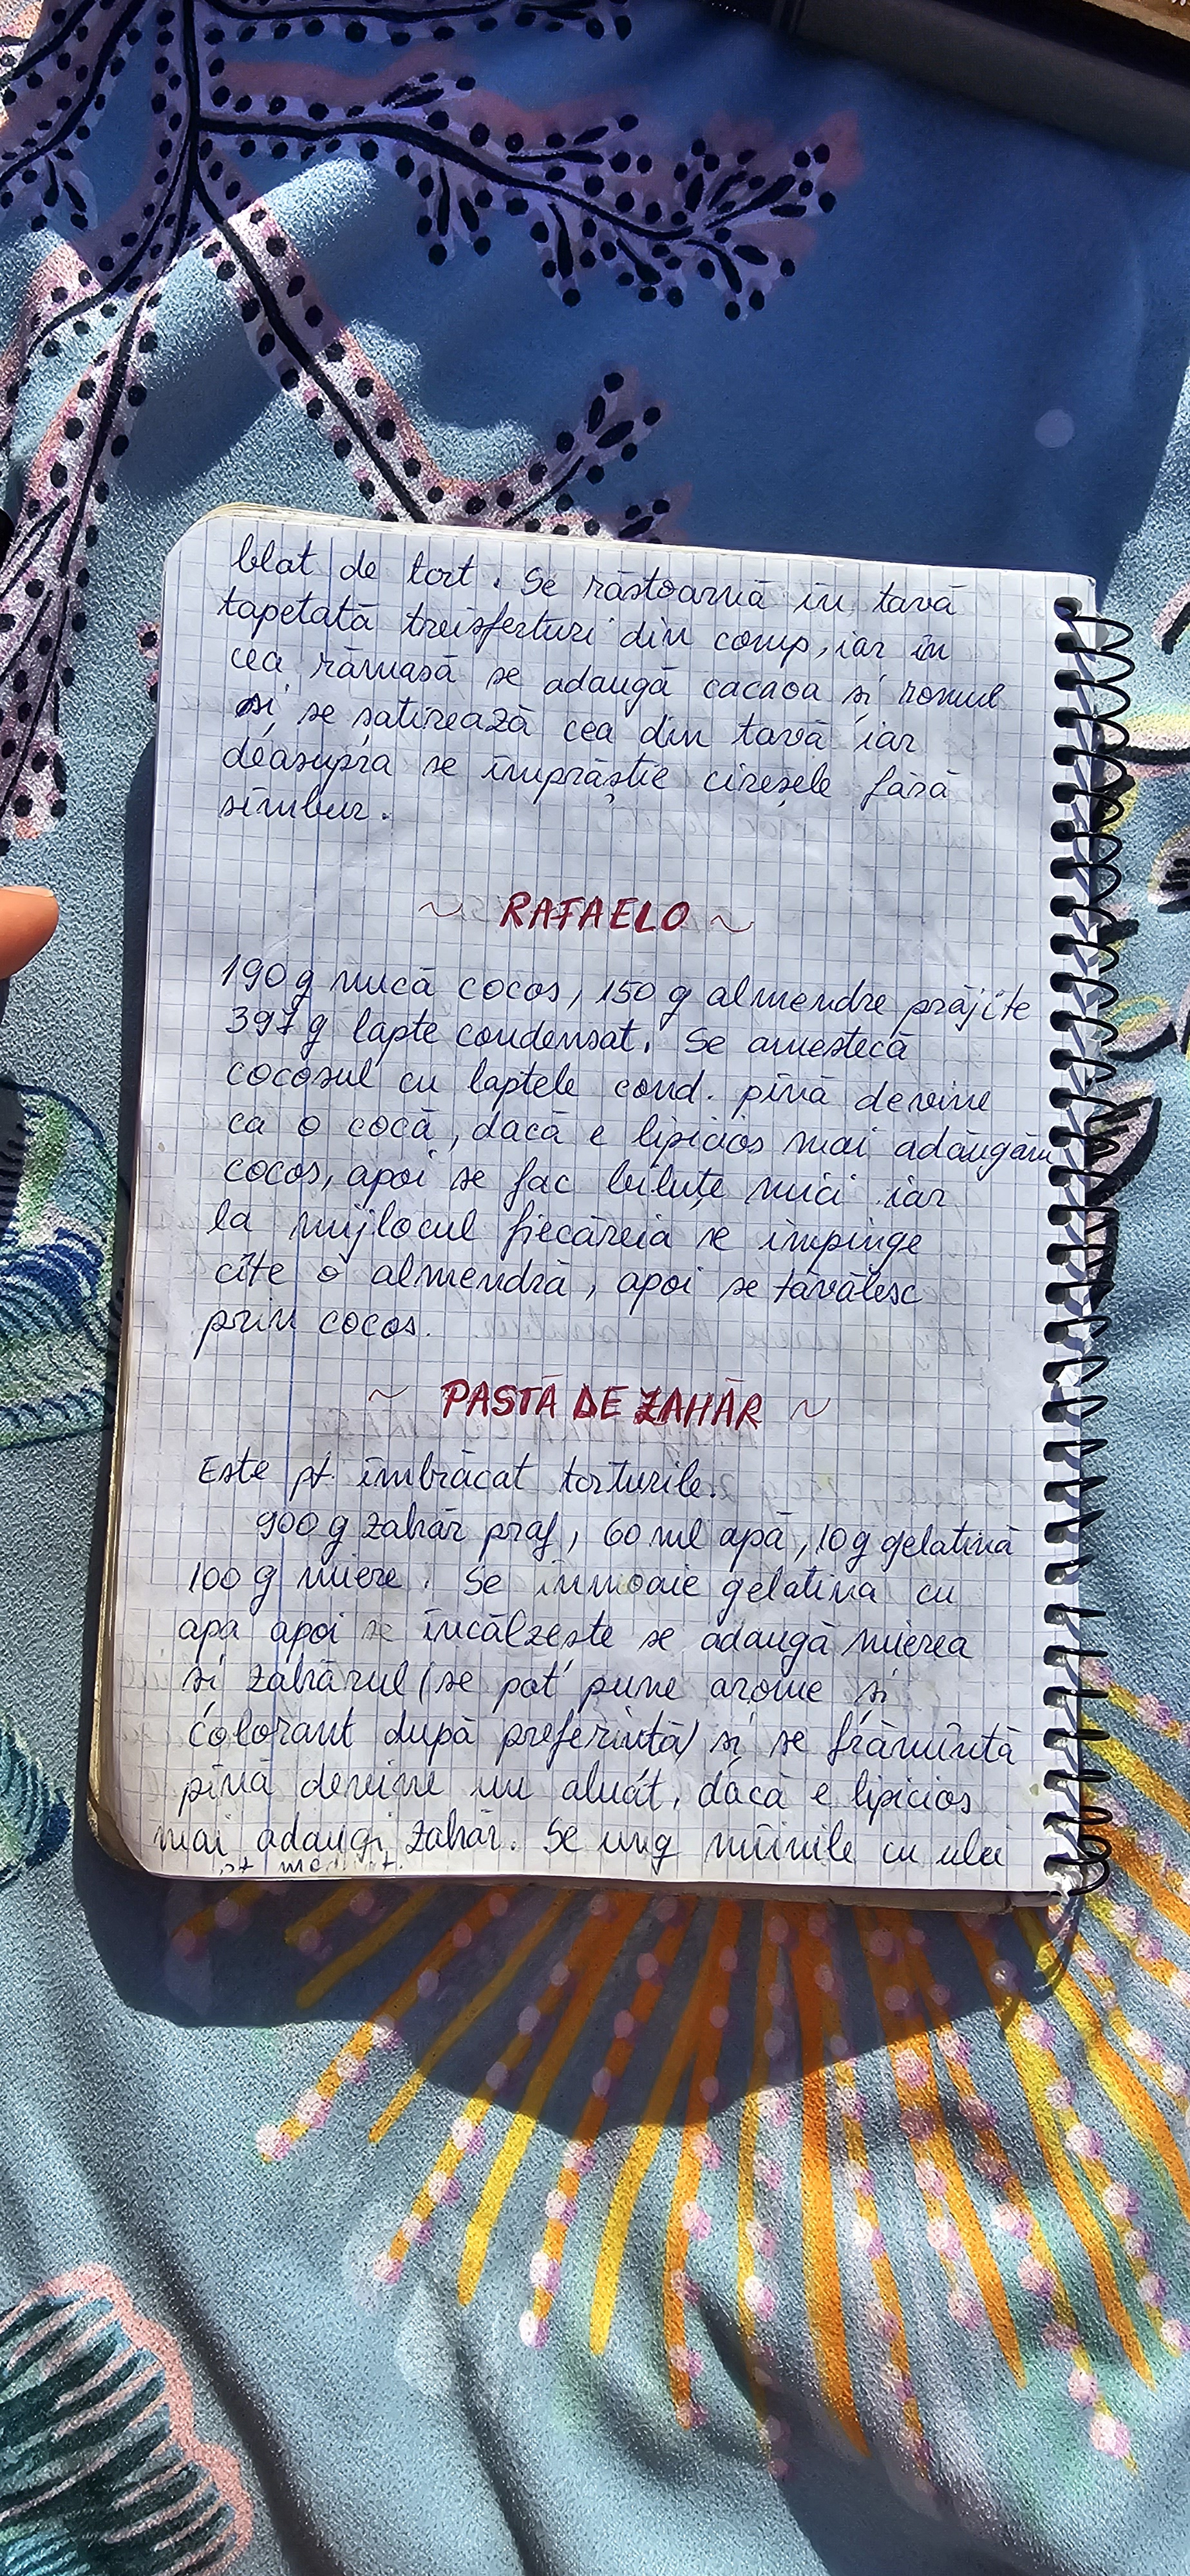 blat de tort. Se răstoarnă în tavă
tapetată treisferturi din comp, iar în
cea rămasă se adaugă cacaoa si romul
si se satirează cea din tavă iar
deasupra se împrăștie ciresele fără
sîmbur.
~ RAFAELO ~
190 g nucă cocos, 150 g almendre prăjite
397 g lapte condensat. Se amestecă
cocosul cu laptele cond. pînă devine
ca o cocă, dacă e lipicios mai adăugăm
cocos, apoi se fac biluțe mici iar
la mijlocul fiecăreia se împinge
cîte o almendră, apoi se tăvălesc
prin cocos.
~ PASTĂ DE ZAHĂR ~
Este pt. îmbrăcat torturile.
900 g zahăr praf, 60 ml apă, 10 g gelatină
100 g miere. Se înmoaie gelatina cu
apa apoi se încălzește se adaugă mierea
si zahărul (se pot pune arome si
colorant după preferintă) si se frămîntă
pînă devine un aluat, dacă e lipicios
mai adaugi zahăr. Se ung mîinile cu ulei